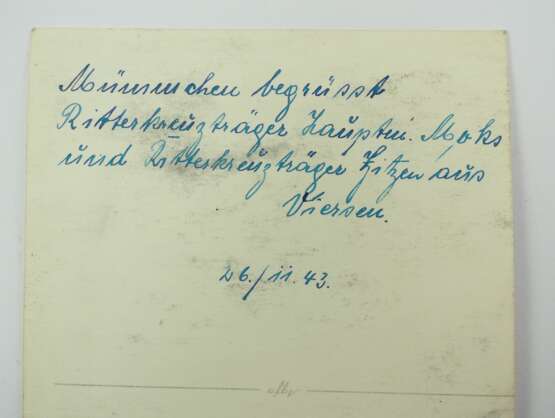 Mümmchen begrüsst
Ritterkreuzträger Hauptm. Moks
und Ritterkreuzträger Zitzen aus
Viersen.
26./11.43.